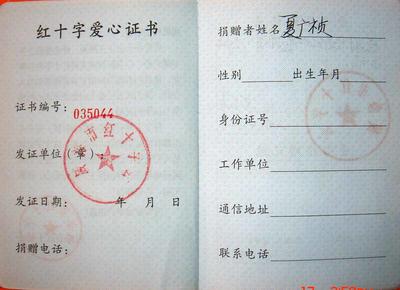 红十字爱心证书
证书编号:
035044
发证单位(章):
市红十字
发证日期: 年 月 日
捐赠电话:
捐赠者姓名 夏广桢
性别 出生年月
身份证号
工作单位
通信地址
联系电话